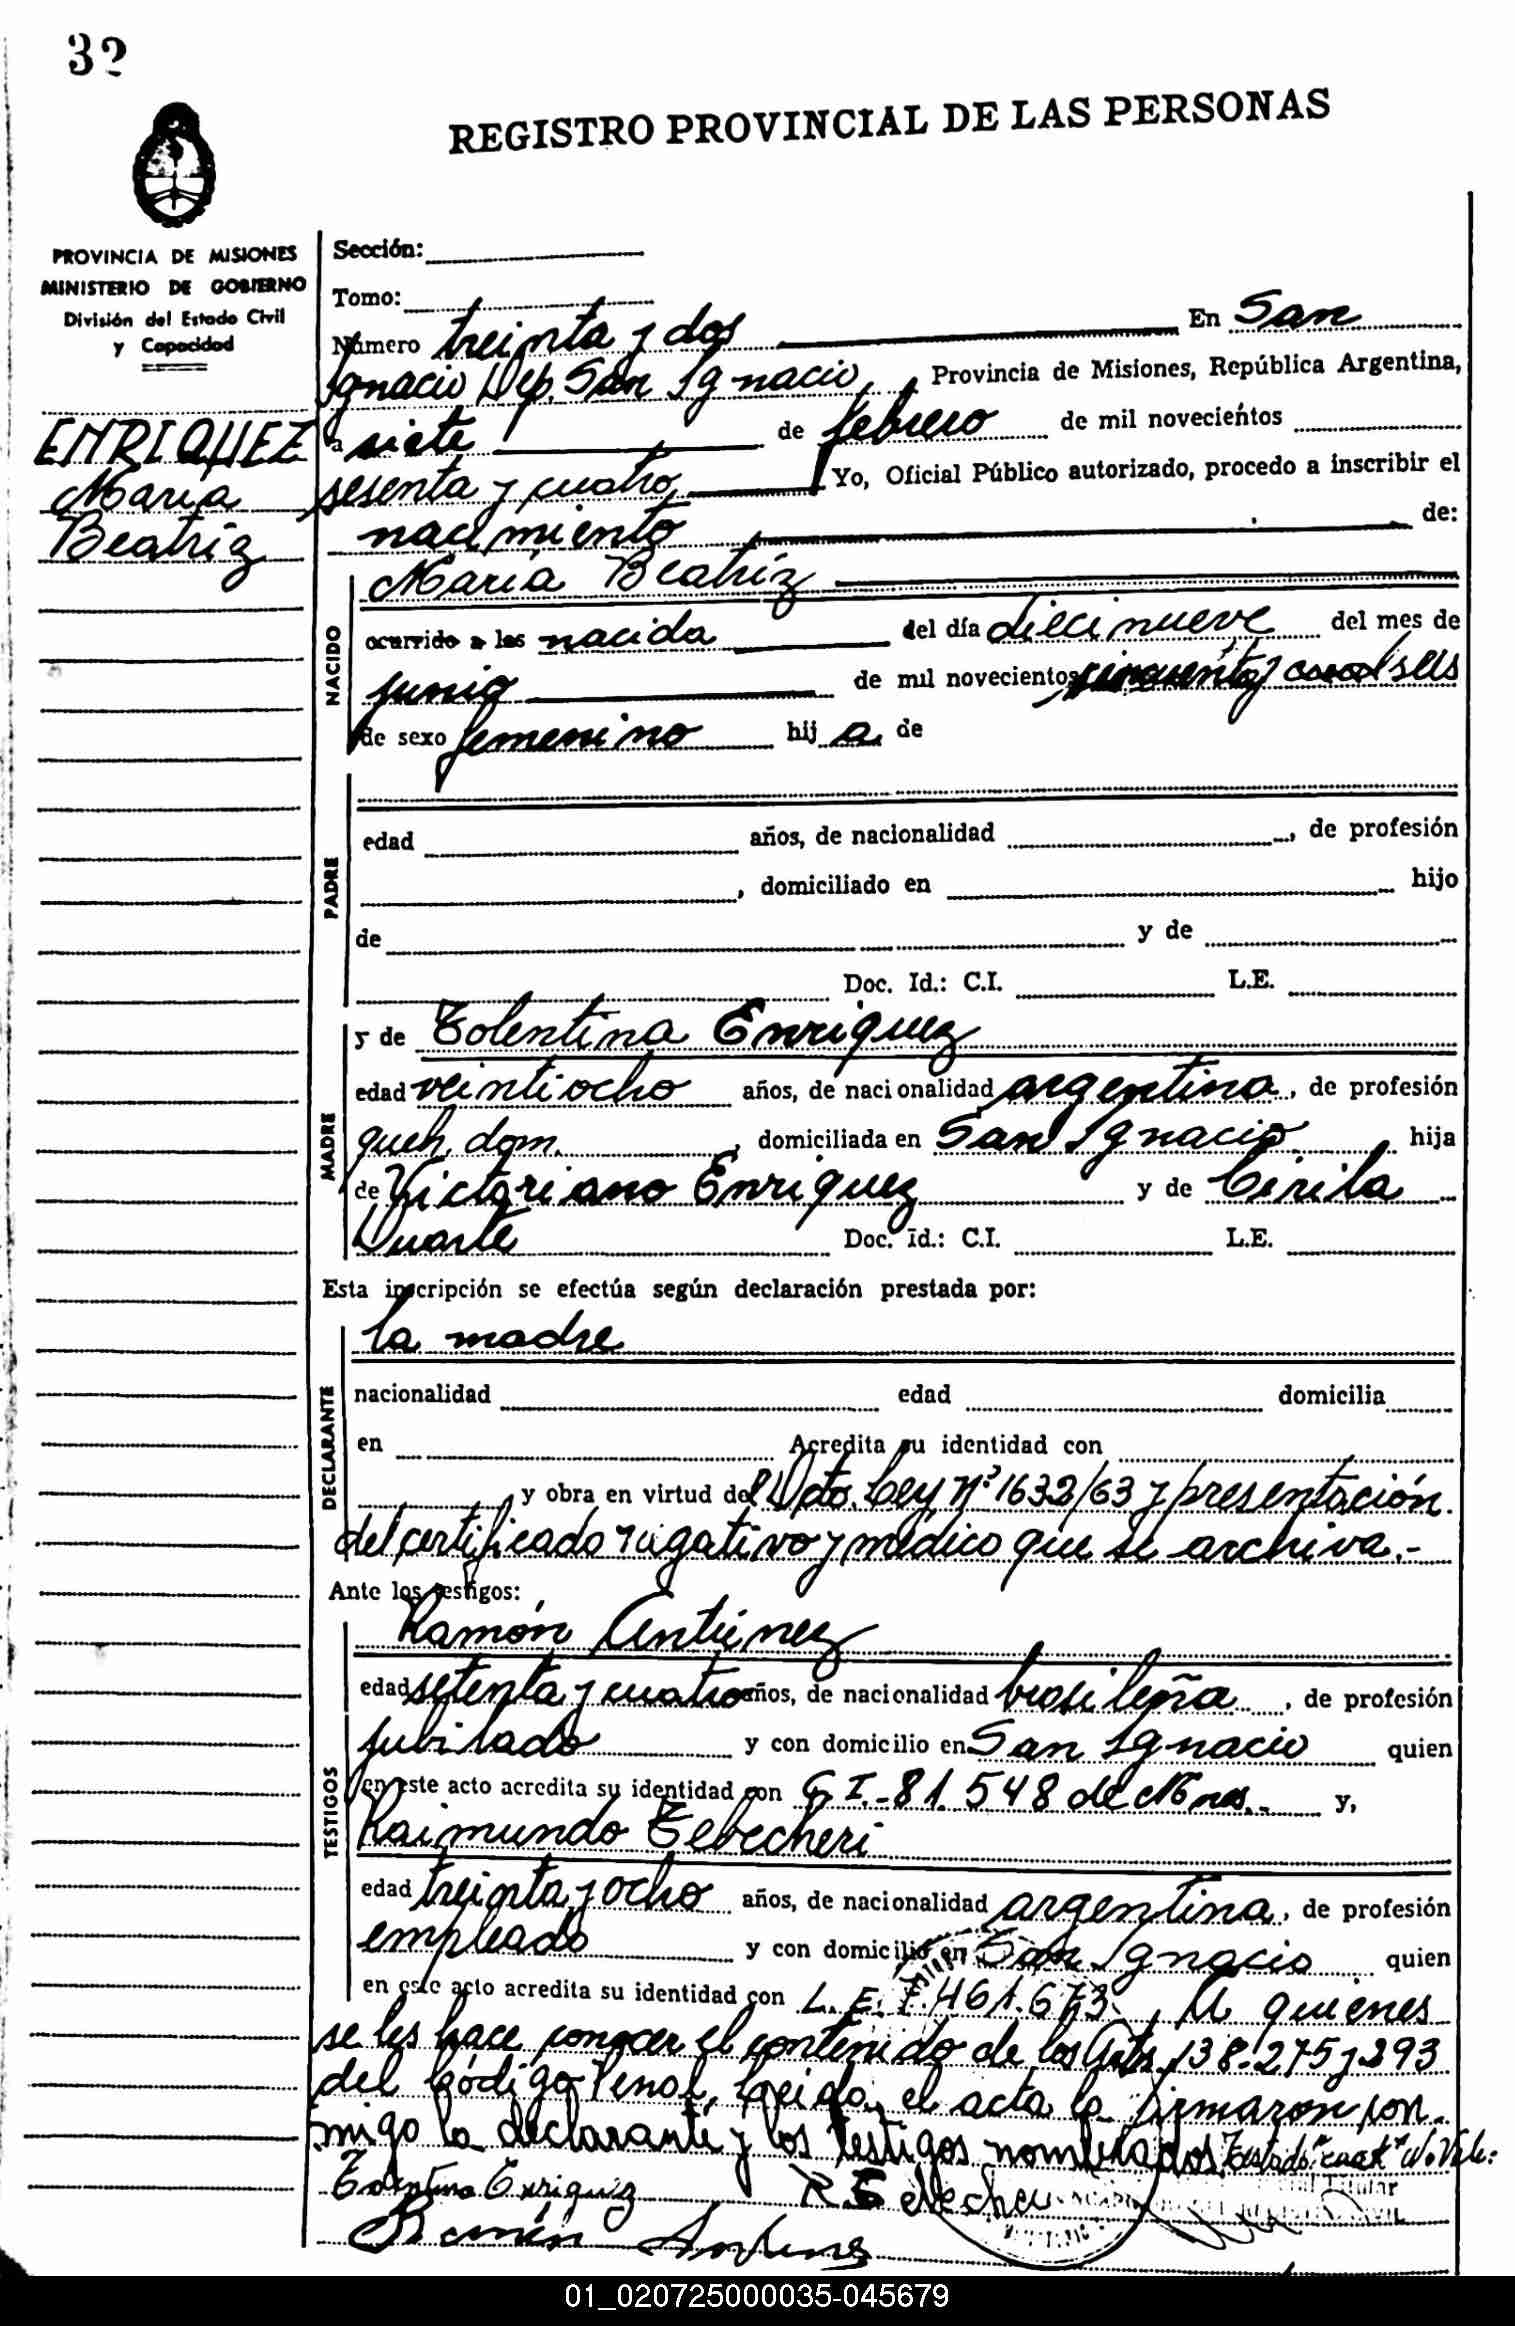 32
REGISTRO PROVINCIAL DE LAS PERSONAS
PROVINCIA DE MISIONES
MINISTERIO DE GOBIERNO
División del Estado Civil
y Capacidad
ENRIQUEZ
María
Beatríz
Sección:
Tomo:
Número treinta y dos En San
Ignacio Dep. San Ignacio, Provincia de Misiones, República Argentina,
a siete de febrero de mil novecientos
sesenta y cuatro Yo, Oficial Público autorizado, procedo a inscribir el
nacimiento de:
NACIDO
María Beatríz
ocurrido a las nacida del día diecinueve del mes de
junio de mil novecientos cincuenta y seis
de sexo femenino hij a de
PADRE
edad años, de nacionalidad , de profesión
, domiciliado en hijo
de y de
Doc. Id.: C.I. L.E.
MADRE
y de Tolentina Enriquez
edad veintiocho años, de nacionalidad argentina, de profesión
queh. dom. , domiciliada en San Ignacio hija
de Victoriano Enriquez y de Cirila
Duarte Doc. Id.: C.I. L.E.
Esta inscripción se efectúa según declaración prestada por:
DECLARANTE
la madre
nacionalidad edad domicilia
en Acredita su identidad con
y obra en virtud del Dto. Ley Nº 1632/63 y presentación
del certificado negativo y médico que se archiva.-
Ante los testigos:
TESTIGOS
Ramón Antúnez
edad setenta y cuatro años, de nacionalidad brasileña, de profesión
jubilado y con domicilio en San Ignacio quien
en este acto acredita su identidad con C. I.-81.548 de Mnes.- y,
Raimundo Tebecheri
edad treinta y ocho años, de nacionalidad argentina, de profesión
empleado y con domicilio en San Ignacio quien
en este acto acredita su identidad con L. E. 7.461.673. A quienes
se les hace conocer el contenido de los Arts. 138-275 y 293
del Código Penal, Leida el acta la firmaron con-
migo la declarante y los testigos nombrados. Testado "cuat" No Vale:
Tolentina Enriquez
Ramón Antunez
01_020725000035-045679